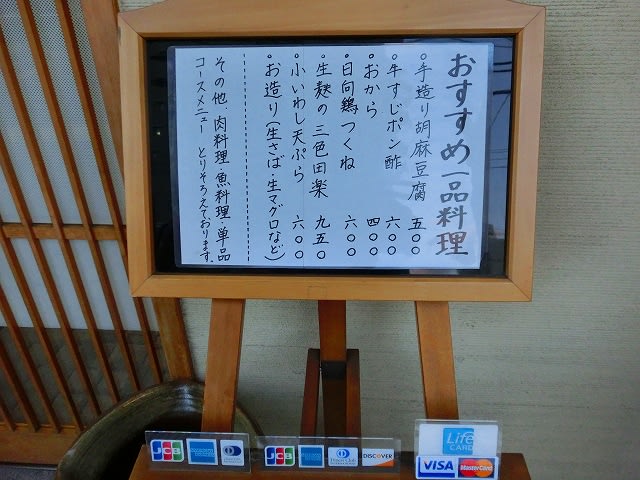 おすすめ一品料理
◦手造り胡麻豆腐 五〇〇
◦牛すじポン酢 六〇〇
◦おから 四〇〇
◦日向鶏つくね 六〇〇
◦生麩の三色田楽 九五〇
◦小いわし天ぷら 六〇〇
◦お造り(生さば・生マグロなど)
その他、肉料理・魚料理・単品
コースメニュー とりそろえております。
JCB
AMERICAN EXPRESS
JCB
AMERICAN EXPRESS
Diners Club
DISCOVER
Life
CARD
VISA
MasterCard